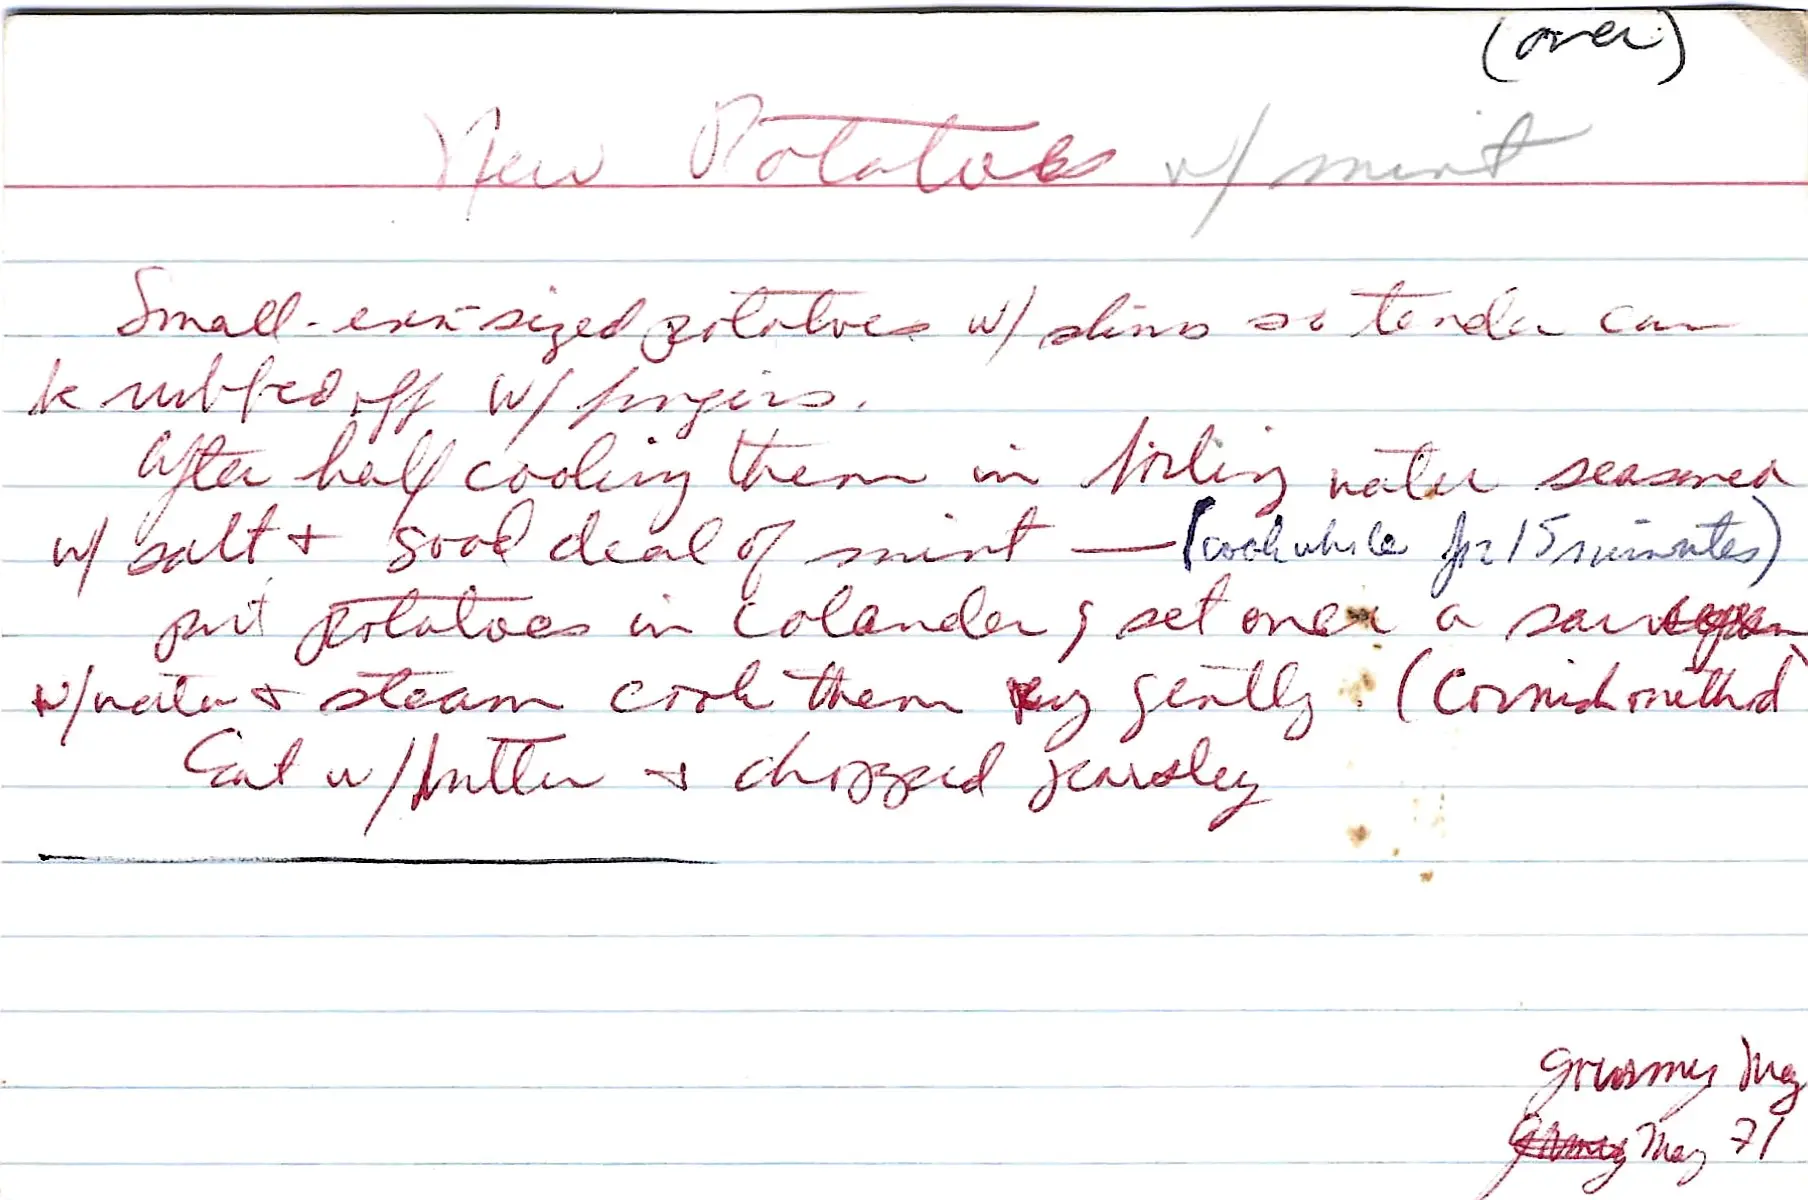 (over)
New Potatoes w/ mint
Small-even-sized potatoes w/ skins so tender can
be rubbed off w/ fingers.
After half cooking them in boiling water seasoned
w/ salt + good deal of mint — (cook while for 15 minutes)
put potatoes in colander & set over a saucepan
w/ water & steam cook them very gently (Cornish method
Eat w/ butter & chopped parsley
May 71